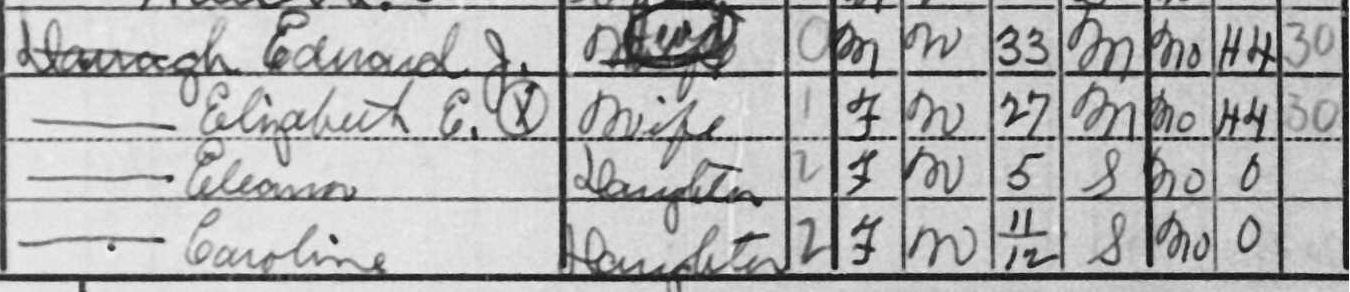 Darragh Edward J. 0 M W 33 M No H4 30
Elizabeth E. X Wife 1 F W 27 M No H4 30
Eleanor Daughter 2 F W 5 S No 0
Caroline Daughter 2 F W 11/12 S No 0